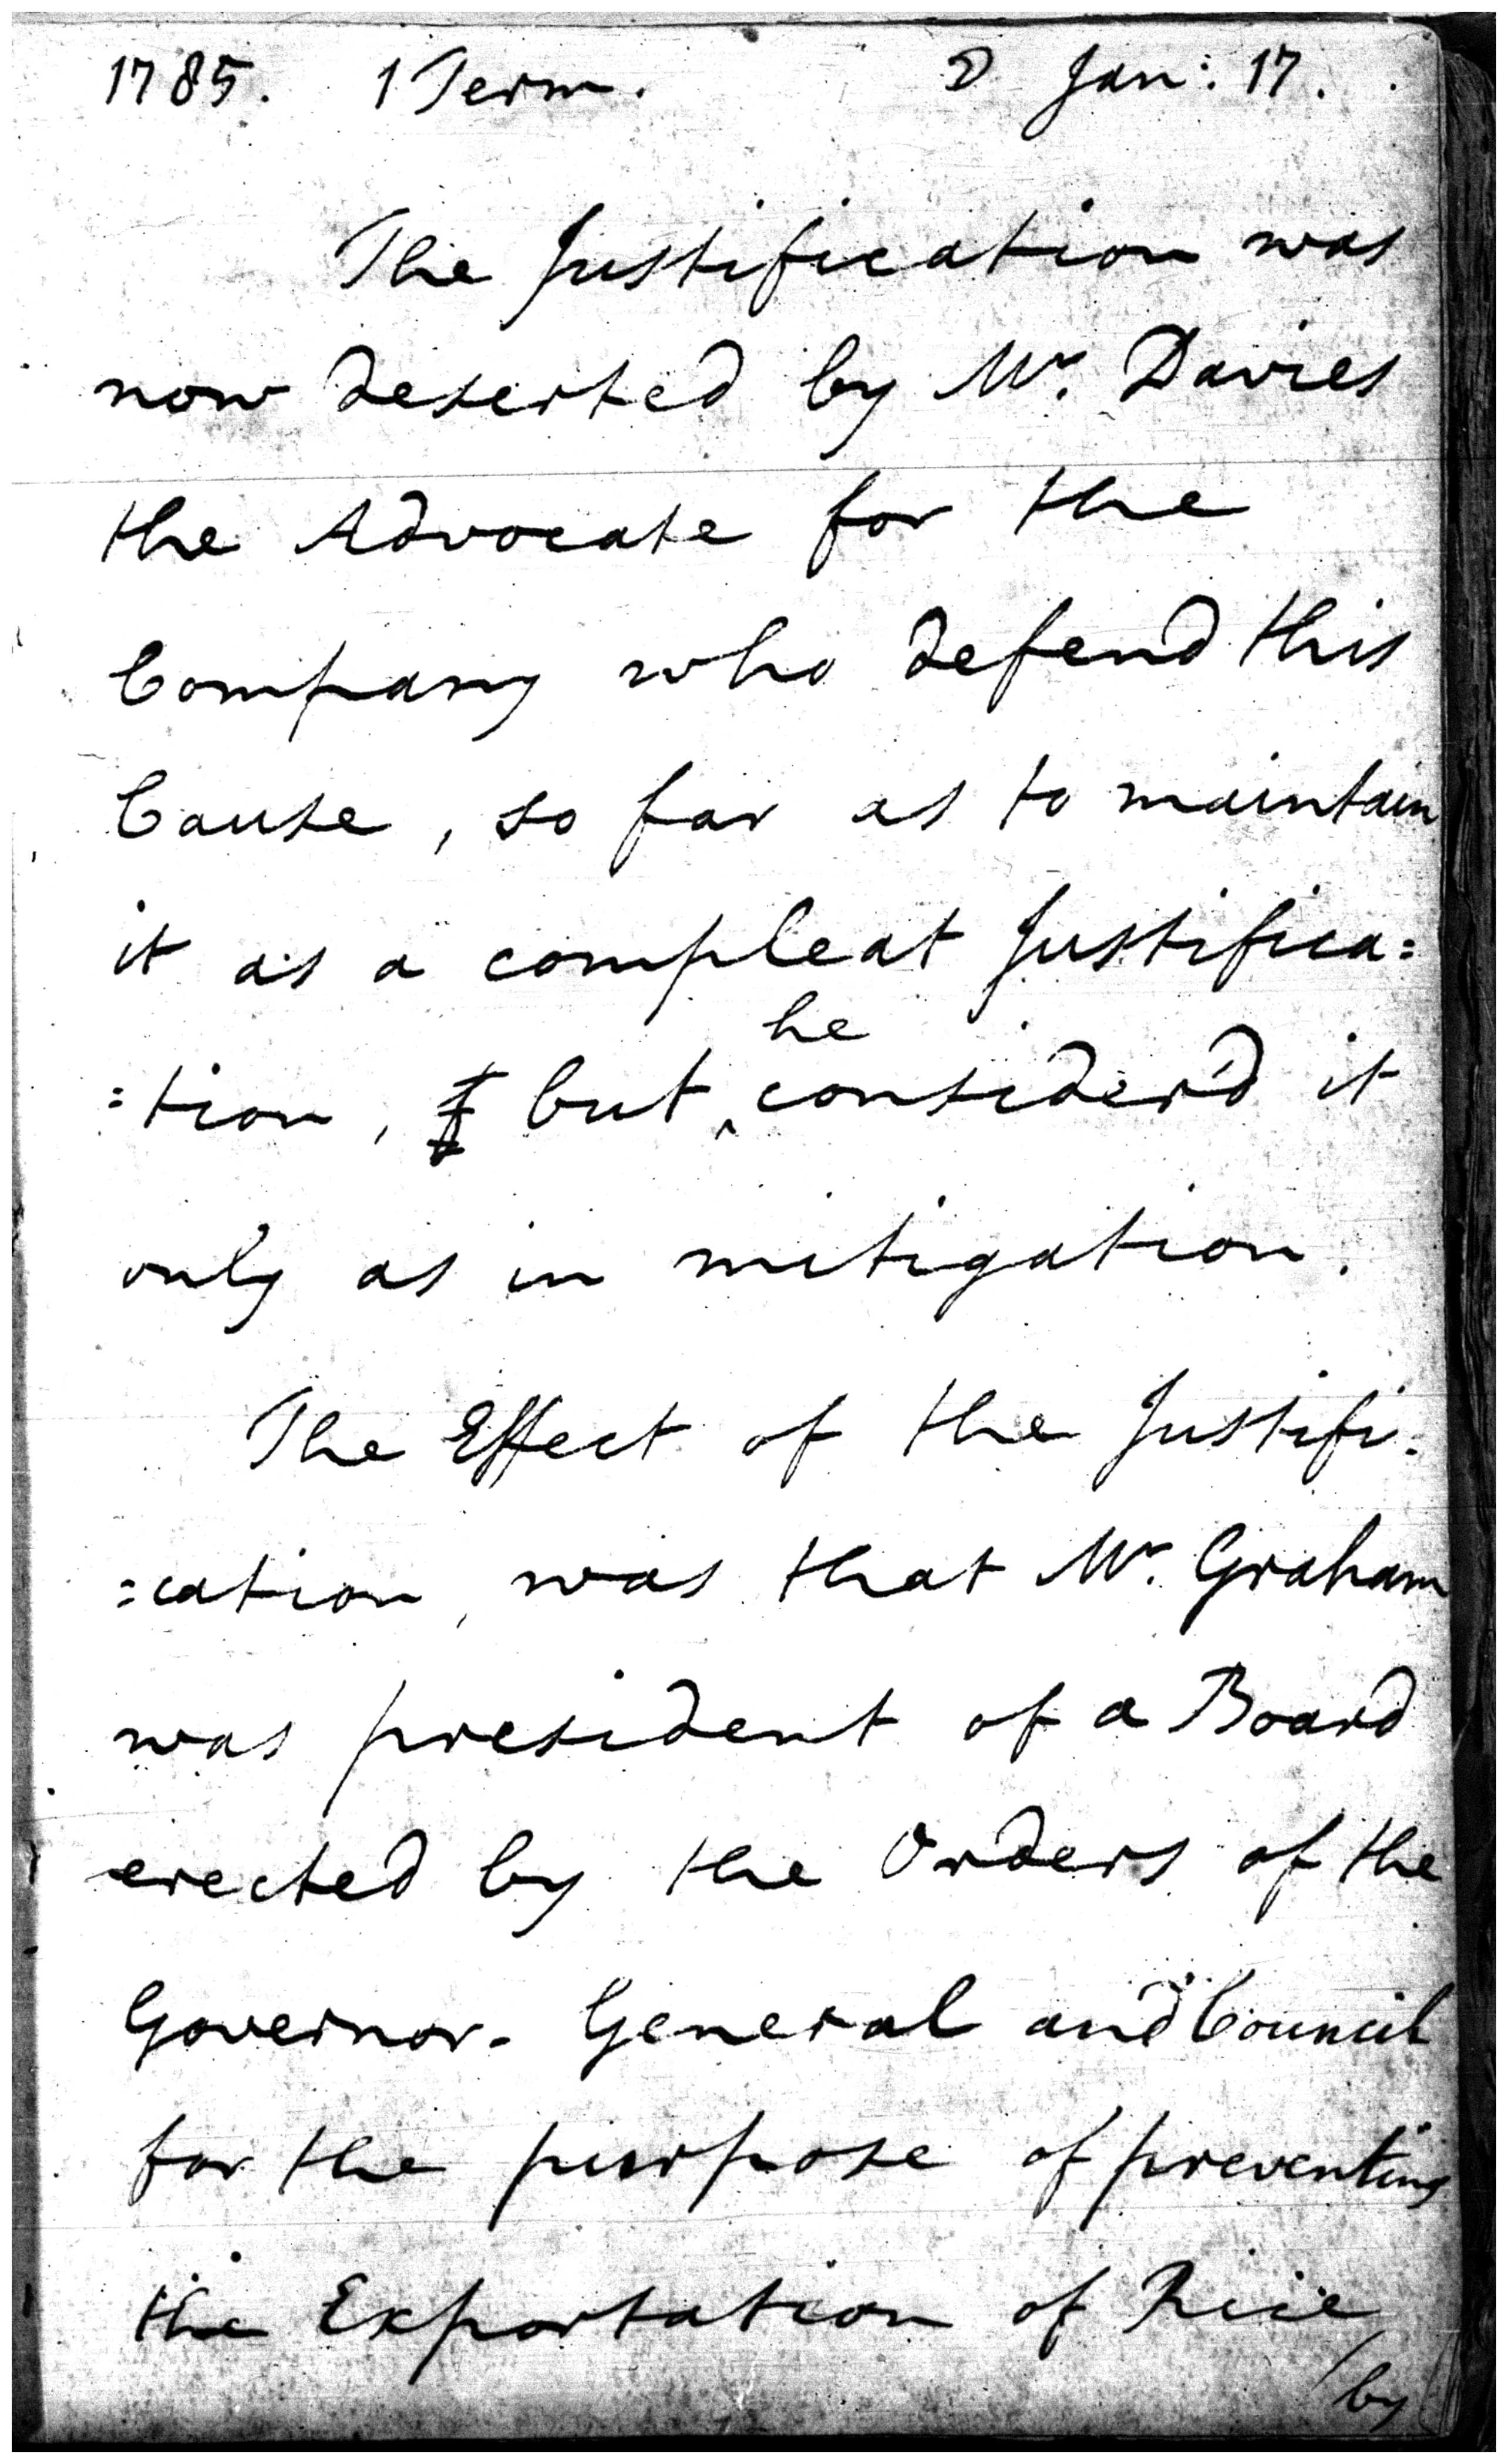 1785. 1 Term. D Jan: 17.
The Justification was
now deserted by Mr. Davies
the Advocate for the
Company who defend this
Cause, so far as to maintain
it as a compleat Justifica:
:tion, but he consider'd it
only as in mitigation.
The Effect of the Justifi:
:cation, was that Mr. Graham
was president of a Board
erected by the Orders of the
Governor-General and Council
for the purpose of preventing
the Exportation of Rice
by